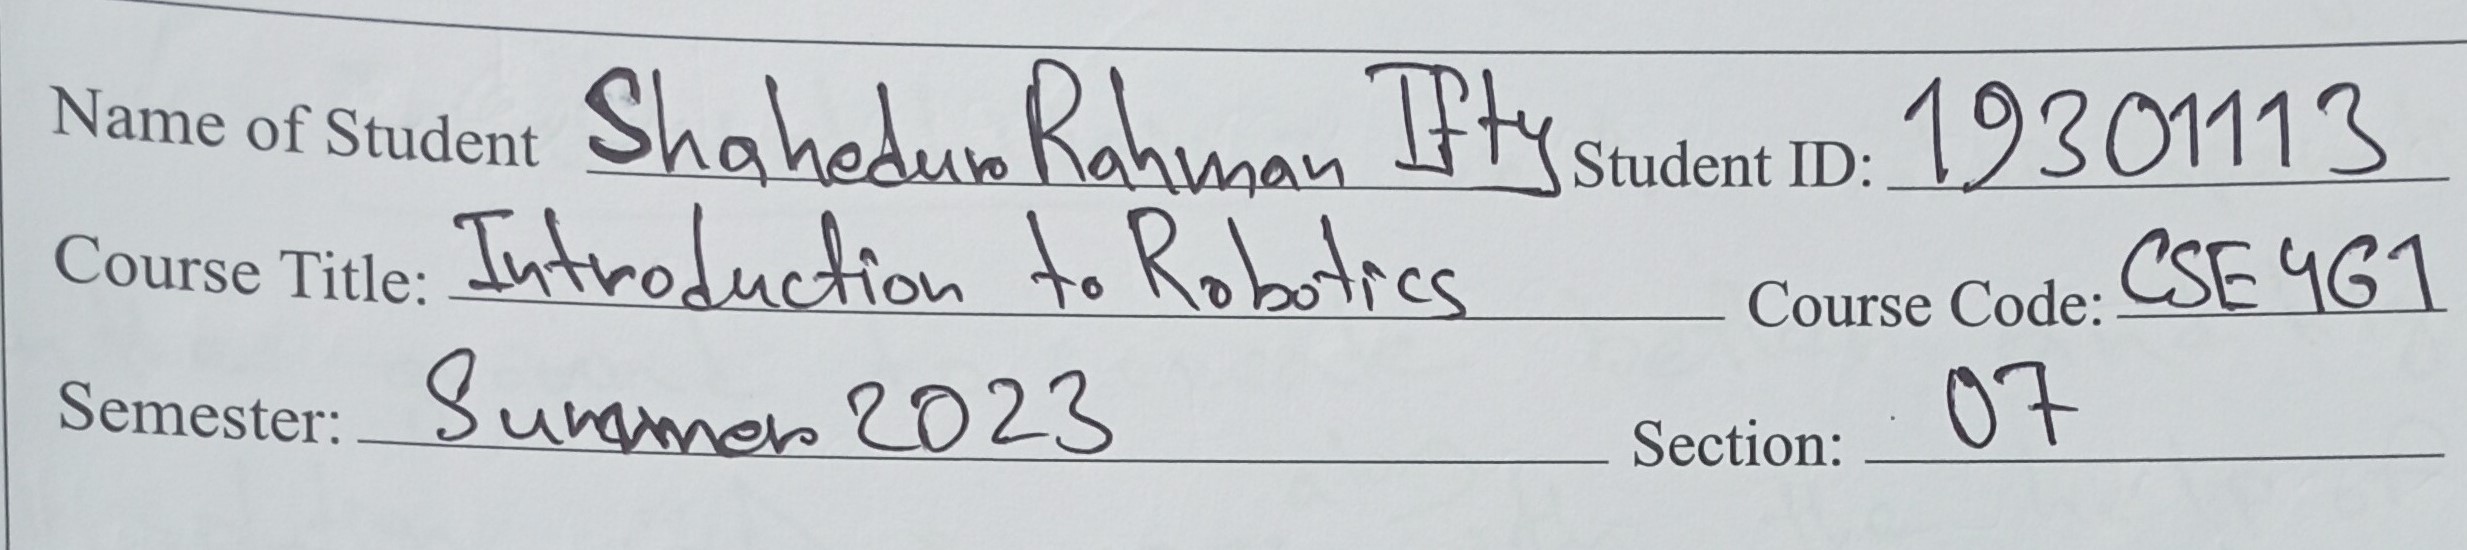 Name of Student Shahedur Rahman Ifty Student ID: 19301113
Course Title: Introduction to Robotics Course Code: CSE 461
Semester: Summer 2023 Section: 07